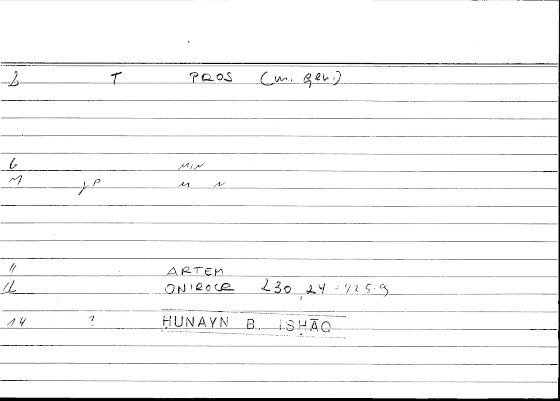 2 T PROS (m. gen.)
6 MIN
7 jP M N
11 ARTEM
12 ONIROCR 230,24 = 425.9
14 ? HUNAYN B. ISḤĀQ